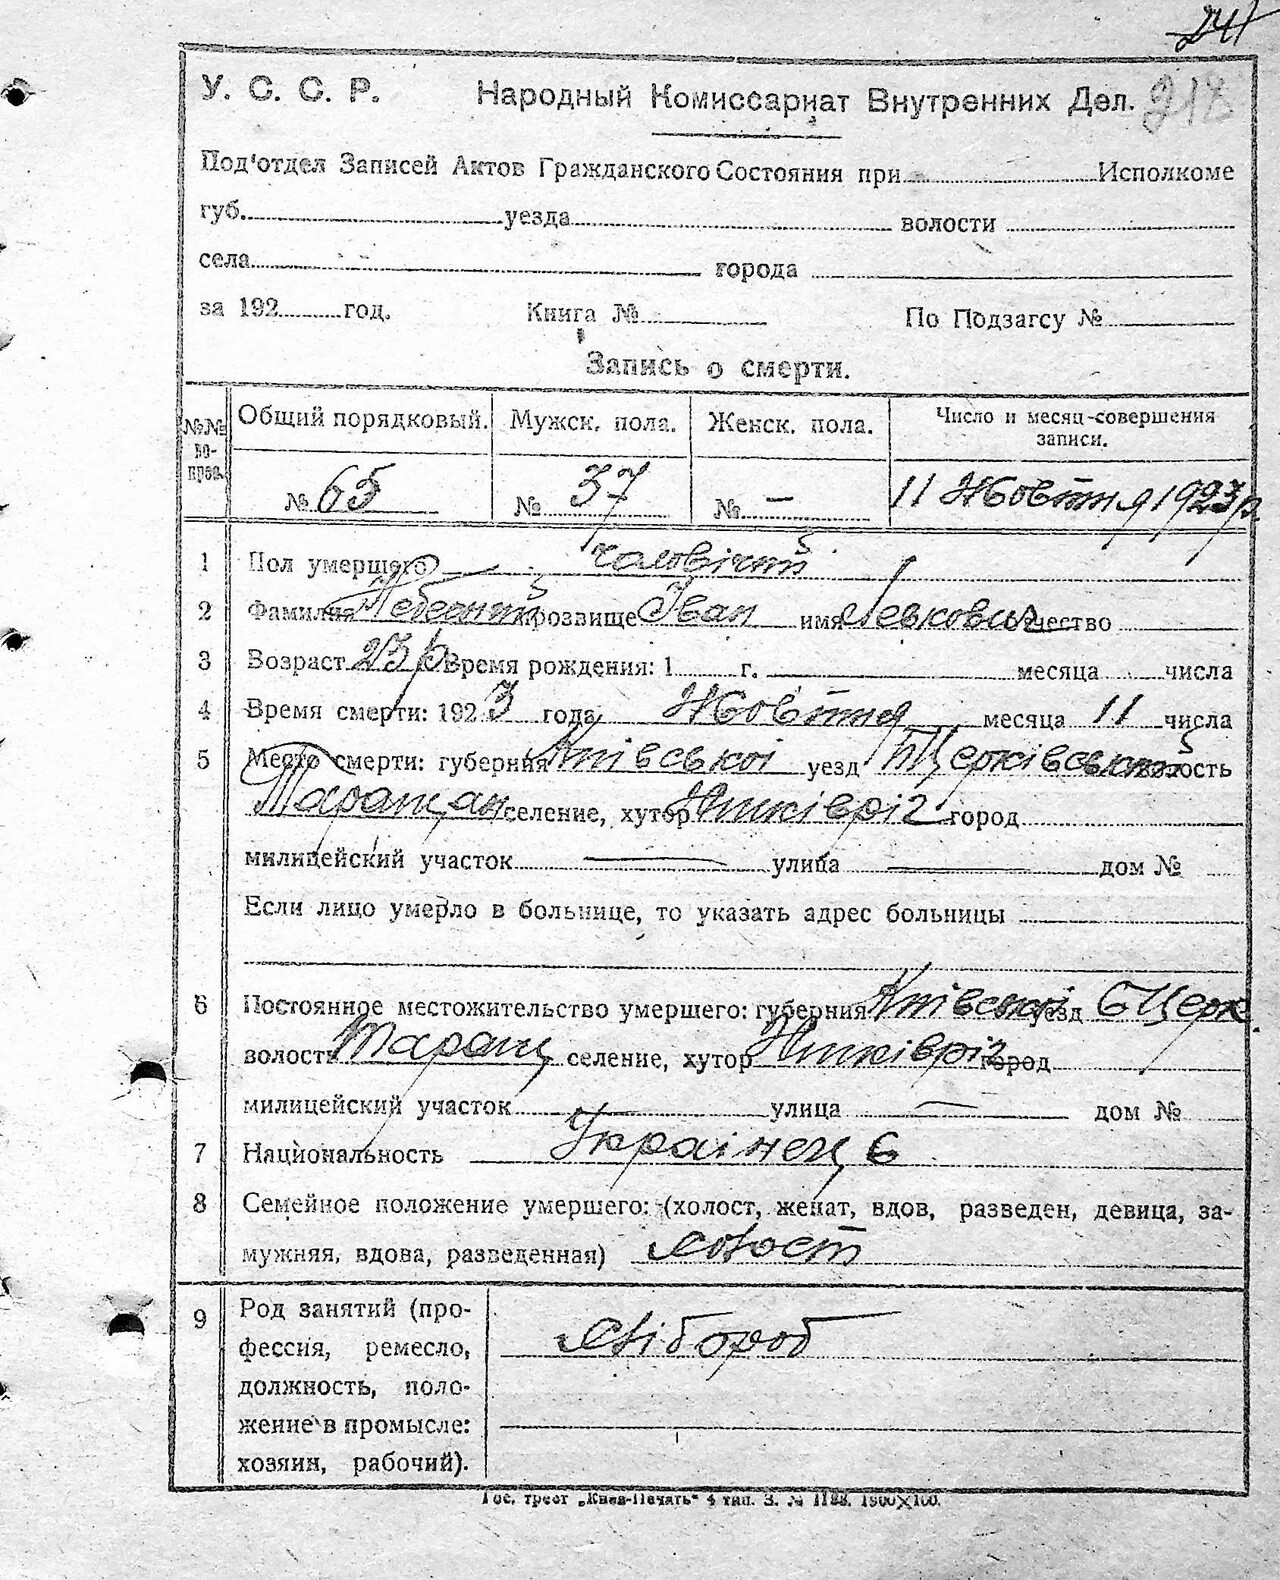 241
У. С. С. Р. Народный Комиссариат Внутренних Дел. 218
Под'отдел Записей Актов Гражданского Состояния при Исполкоме
губ. уезда волости
села города
за 192 год. Книга № По Подзагсу №
Запись о смерти.
№№ во-прос. Общий порядковый. Мужск. пола. Женск. пола. Число и месяц совершения записи.
№ 65 № 37 № – 11 Жовтня 1923 р.
1 Пол умершего чаловічий
2 Фамилия прозвище Іван имя Левкович отчество
3 Возраст 23 р Время рождения: 1 г. месяца числа
4 Время смерти: 1923 года Жовтня месяца 11 числа
5 Место смерти: губерния Київської уезд БЦерківської волость
Таращан селение, хутор город
милицейский участок — улица — дом №
Если лицо умерло в больнице, то указать адрес больницы
6 Постоянное местожительство умершего: губерния Київської уезд БЦерк.
волость Таращ селение, хутор город
милицейский участок улица — дом №
7 Национальность Українец
8 Семейное положение умершего: (холост, женат, вдов, разведен, девица, за-
мужняя, вдова, разведенная) холост
9 Род занятий (про-
фессия, ремесло, хлібороб
должность, поло-
жение в промысле:
хозяин, рабочий).
Гос. трест „Киев-Печать" 4 тип. З. № 1900×100.